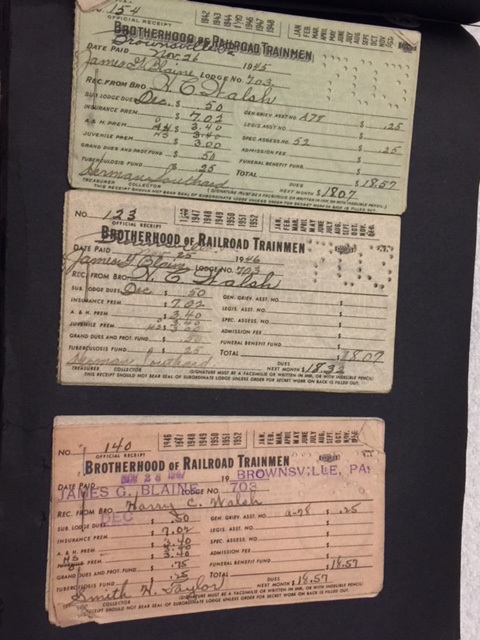 154
OFFICIAL RECEIPT
1942 1943 1944 1945 1946 1947 1948
JAN. FEB. MAR. APRIL MAY JUNE JULY AUG. SEPT. OCT. NOV. DEC.
BROTHERHOOD OF RAILROAD TRAINMEN
Brownsville
DATE PAID Nov 26 1945
James G. Blaine LODGE NO. 703
REC. FROM BRO. H C Walsh
SUB. LODGE DUES Dec. $ .50
GEN. GRIEV. ASST. NO. A78 $ .25
INSURANCE PREM. $ 7.02
LEGIS. ASST. NO. $
A. & H. PREM. $ 3.40
SPEC. ASSESS. NO. 52 $ .25
JUVENILE PREM. $ 3.00
ADMISSION FEE $
GRAND DUES AND PROT. FUND $ .50
FUNERAL BENEFIT FUND $
TUBERCULOSIS FUND $ .25
TOTAL $ 18.57
Herman Southard
DUES NEXT MONTH $ 18.07
TREASURER COLLECTOR (SIGNATURE MUST BE A FACSIMILE OR WRITTEN IN INK, OR WITH INDELIBLE PENCIL)
THIS RECEIPT SHOULD NOT BEAR SEAL OF SUBORDINATE LODGE UNLESS ORDER FOR SECRET WORK ON BACK IS FILLED OUT.
NO. 123
OFFICIAL RECEIPT
1946 1947 1948 1949 1950 1951 1952
JAN. FEB. MAR. APRIL MAY JUNE JULY AUG. SEPT. OCT. NOV. DEC.
BROTHERHOOD OF RAILROAD TRAINMEN
DATE PAID 25 1946
James G. Blaine LODGE NO. 703
REC. FROM BRO. H. C. Walsh
SUB. LODGE DUES Dec $ 50
GEN. GRIEV. ASST. NO. $
INSURANCE PREM. $ 7.02
LEGIS. ASST. NO. $
A. & H. PREM. $ 3.40
SPEC. ASSESS. NO. $
JUVENILE PREM.
ADMISSION FEE $
GRAND DUES AND PROT. FUND $ .50
FUNERAL BENEFIT FUND $
TUBERCULOSIS FUND $ 25
TOTAL $ 18.07
Herman Southard
DUES NEXT MONTH $ 18.32
TREASURER COLLECTOR (SIGNATURE MUST BE A FACSIMILE OR WRITTEN IN INK, OR WITH INDELIBLE PENCIL)
THIS RECEIPT SHOULD NOT BEAR SEAL OF SUBORDINATE LODGE UNLESS ORDER FOR SECRET WORK ON BACK IS FILLED OUT.
NO. 140
OFFICIAL RECEIPT
1946 1947 1948 1949 1950 1951 1952
JAN. FEB. MAR. APRIL MAY JUNE JULY AUG. SEPT. OCT. NOV. DEC.
BROTHERHOOD OF RAILROAD TRAINMEN
DATE PAID 19 BROWNSVILLE, PA.
JAMES G. BLAINE LODGE NO. 703
REC. FROM BRO. Harry C. Walsh
SUB. LODGE DUES DEC $ .50
GEN. GRIEV. ASST. NO. a-78 $ .25
INSURANCE PREM. $ 7.02
LEGIS. ASST. NO. $
A. & H. PREM. $ 3.40
SPEC. ASSESS. NO. $
JUVENILE PREM. $ 3.40
ADMISSION FEE $
GRAND DUES AND PROT. FUND $ .75
FUNERAL BENEFIT FUND $
TUBERCULOSIS FUND $ .25
TOTAL $ 18.57
Smith H. Taylor
DUES NEXT MONTH $ 18.57
COLLECTOR (SIGNATURE MUST BE A FACSIMILE OR WRITTEN IN INK, OR WITH INDELIBLE PENCIL)
THIS RECEIPT SHOULD NOT BEAR SEAL OF SUBORDINATE LODGE UNLESS ORDER FOR SECRET WORK ON BACK IS FILLED OUT.